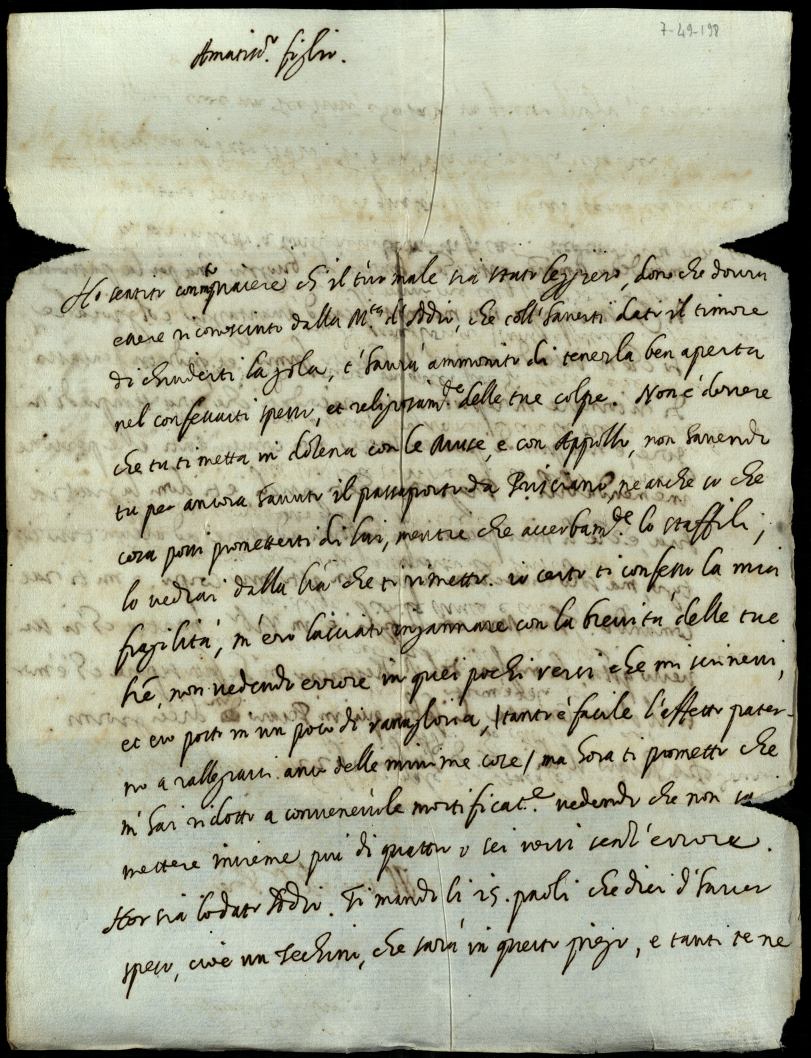 7-49-198
Amatis.mo figlio.
Ho sentito con mio piacere ch' il tuo male sia stato leggiero, dono che dovrà
essere riconosciuto dalla M.tà d'Iddio, che coll'haverti dato il timore
di chiuderti la gola, t'havrà ammonito di tenerla ben aperta
nel confessarti spesso, et religiosam.te delle tue colpe. Non è dovere
che tu ti metta in dozena con le Muse, e con Appollo, non havendo
tu per ancora havuto il passaporto da Prisciano, ne anche so che
cosa possi prometterti di lui, mentre che acerbam.te lo staffili;
lo vedrai dalla tua che ti rimetto. io certo ti confesso la mia
fragilità, m'ero lasciato ingannare con la brevità delle tue
, non vedendo errore in quei pochi versi che mi scrivevi,
et ero posto in un poco di vanagloria, /tanto è facile l'effetto pater-
no a rallegrarsi anco delle minime cose/ ma hora ti prometto che
m'hai ridotto a convenevole mortificat.ne vedendo che non sai
mettere insieme più di quattro o sei versi senz'errore.
Hor sia lodato Iddio. Ti mando li 25. paoli che dici d'haver
speso, cioè un zechino, che sarà in questo piego, e tanti te ne